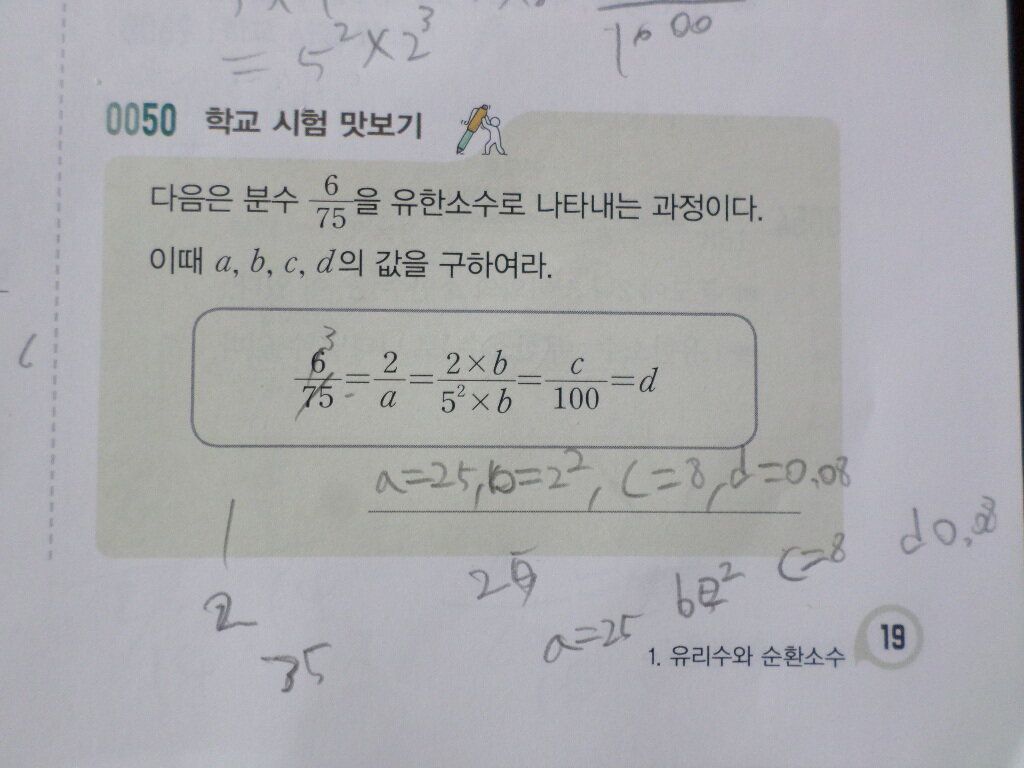 = 5² × 2³
0050 학교 시험 맛보기
다음은 분수 6/75을 유한소수로 나타내는 과정이다.
이때 a, b, c, d의 값을 구하여라.
3
6/75 = 2/a = 2×b/5²×b = c/100 = d
a=25, b=2², c=8, d=0.08
1
2
35
25
a=25
b=2²
c=8
d 0.08
1. 유리수와 순환소수
19